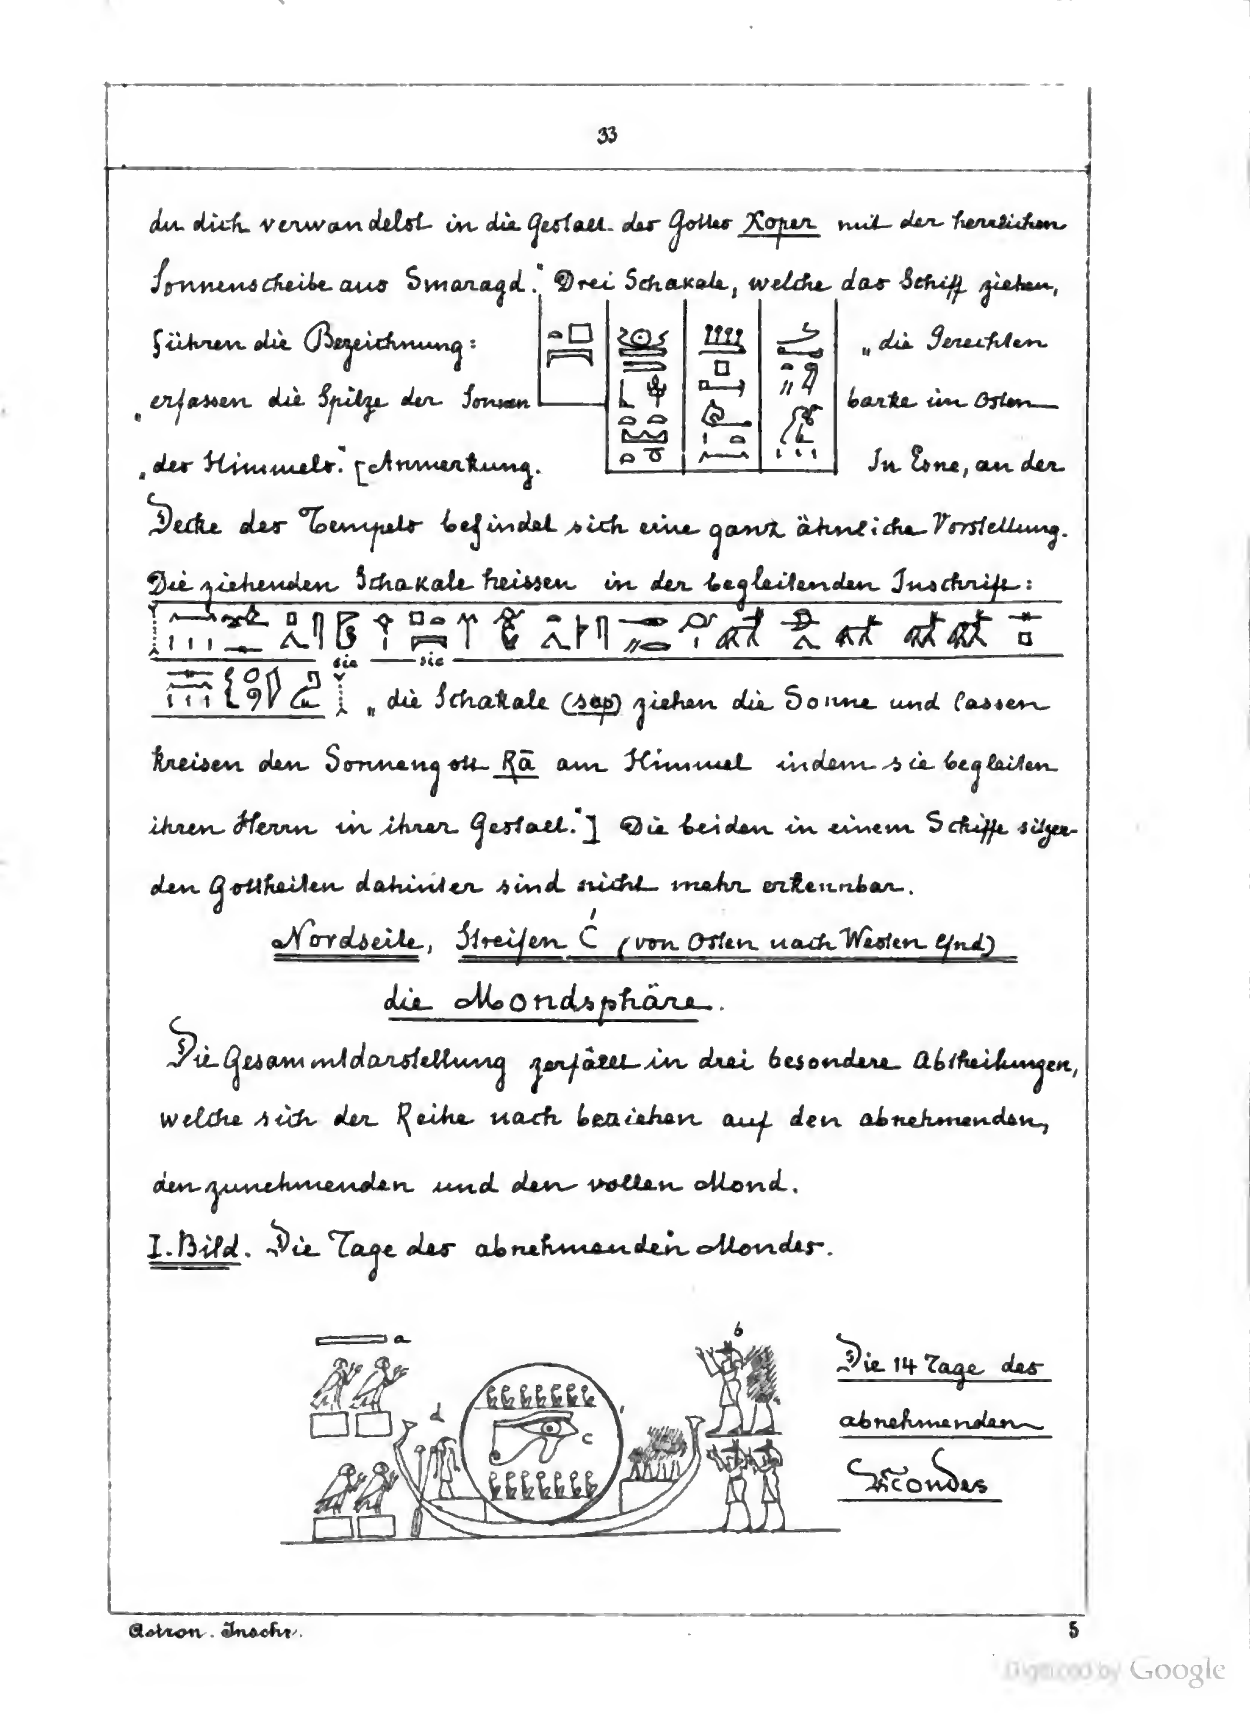 33
du dich verwandelst in die Gestalt des Gottes Xoper mit der herrlichen
Sonnenscheibe aus Smaragd." Drei Schakale, welche das Schiff ziehen,
führen die Bezeichnung: „die Gerechten
„erfassen die Spitze der Sonnen barke im Osten
„des Himmels." [Anmerkung. In Esne, an der
Decke des Tempels befindet sich eine ganz ähnliche Vorstellung.
Die ziehenden Schakale heissen in der begleitenden Inschrift:
sic sic
„die Schakale (sap) ziehen die Sonne und lassen
kreisen den Sonnengott Rā am Himmel indem sie begleiten
ihren Herrn in ihrer Gestalt."] Die beiden in einem Schiffe sitzen-
den Gottheiten dahinter sind nicht mehr erkennbar.
Nordseite, Streifen C' (von Osten nach Westen
die Mondsphäre.
Die Gesammtdarstellung zerfällt in drei besondere Abtheilungen,
welche sich der Reihe nach beziehen auf den abnehmenden,
den zunehmenden und den vollen Mond.
I. Bild. Die Tage des abnehmenden Mondes.
a
b
c
d
Die 14 Tage des
abnehmenden
Mondes
Astron. Inschr. 5
Digitized by Google